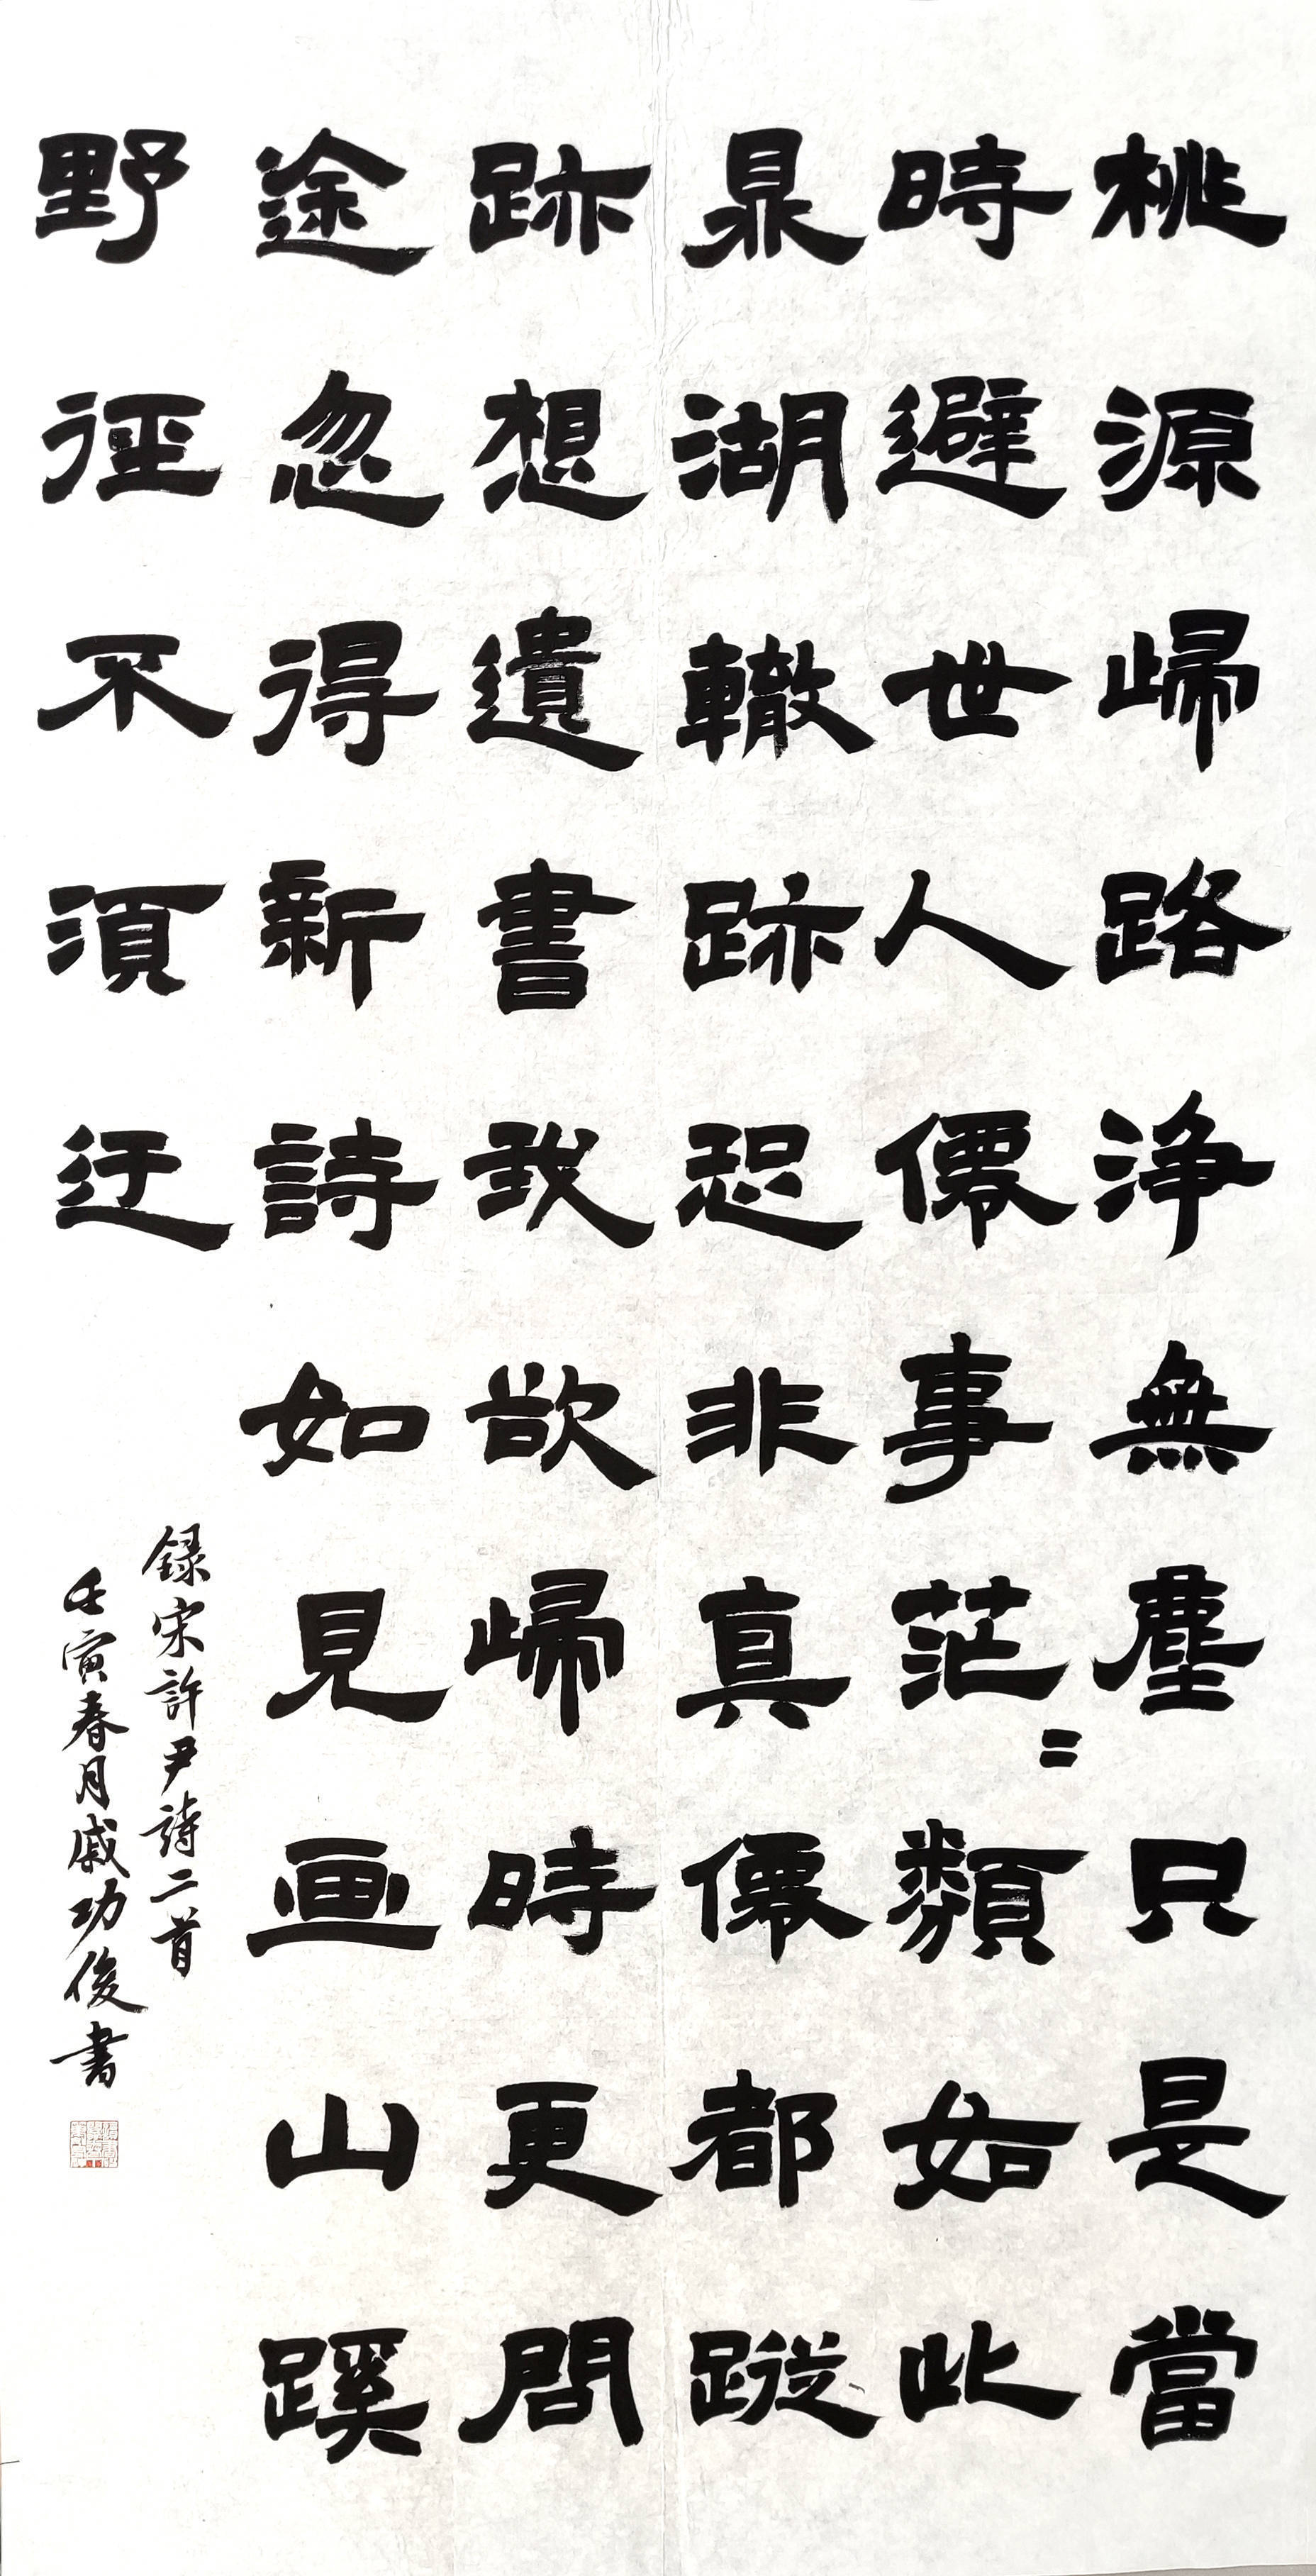 桃源歸路淨無塵只是當
時避世人僊事茫〻類如此
鼎湖轍跡恐非真僊都蹤
跡想遺書我欲歸時更問
途忽得新詩如見画山蹊
野徑不須迂
録宋許尹詩二首
壬寅春月戚功俊書